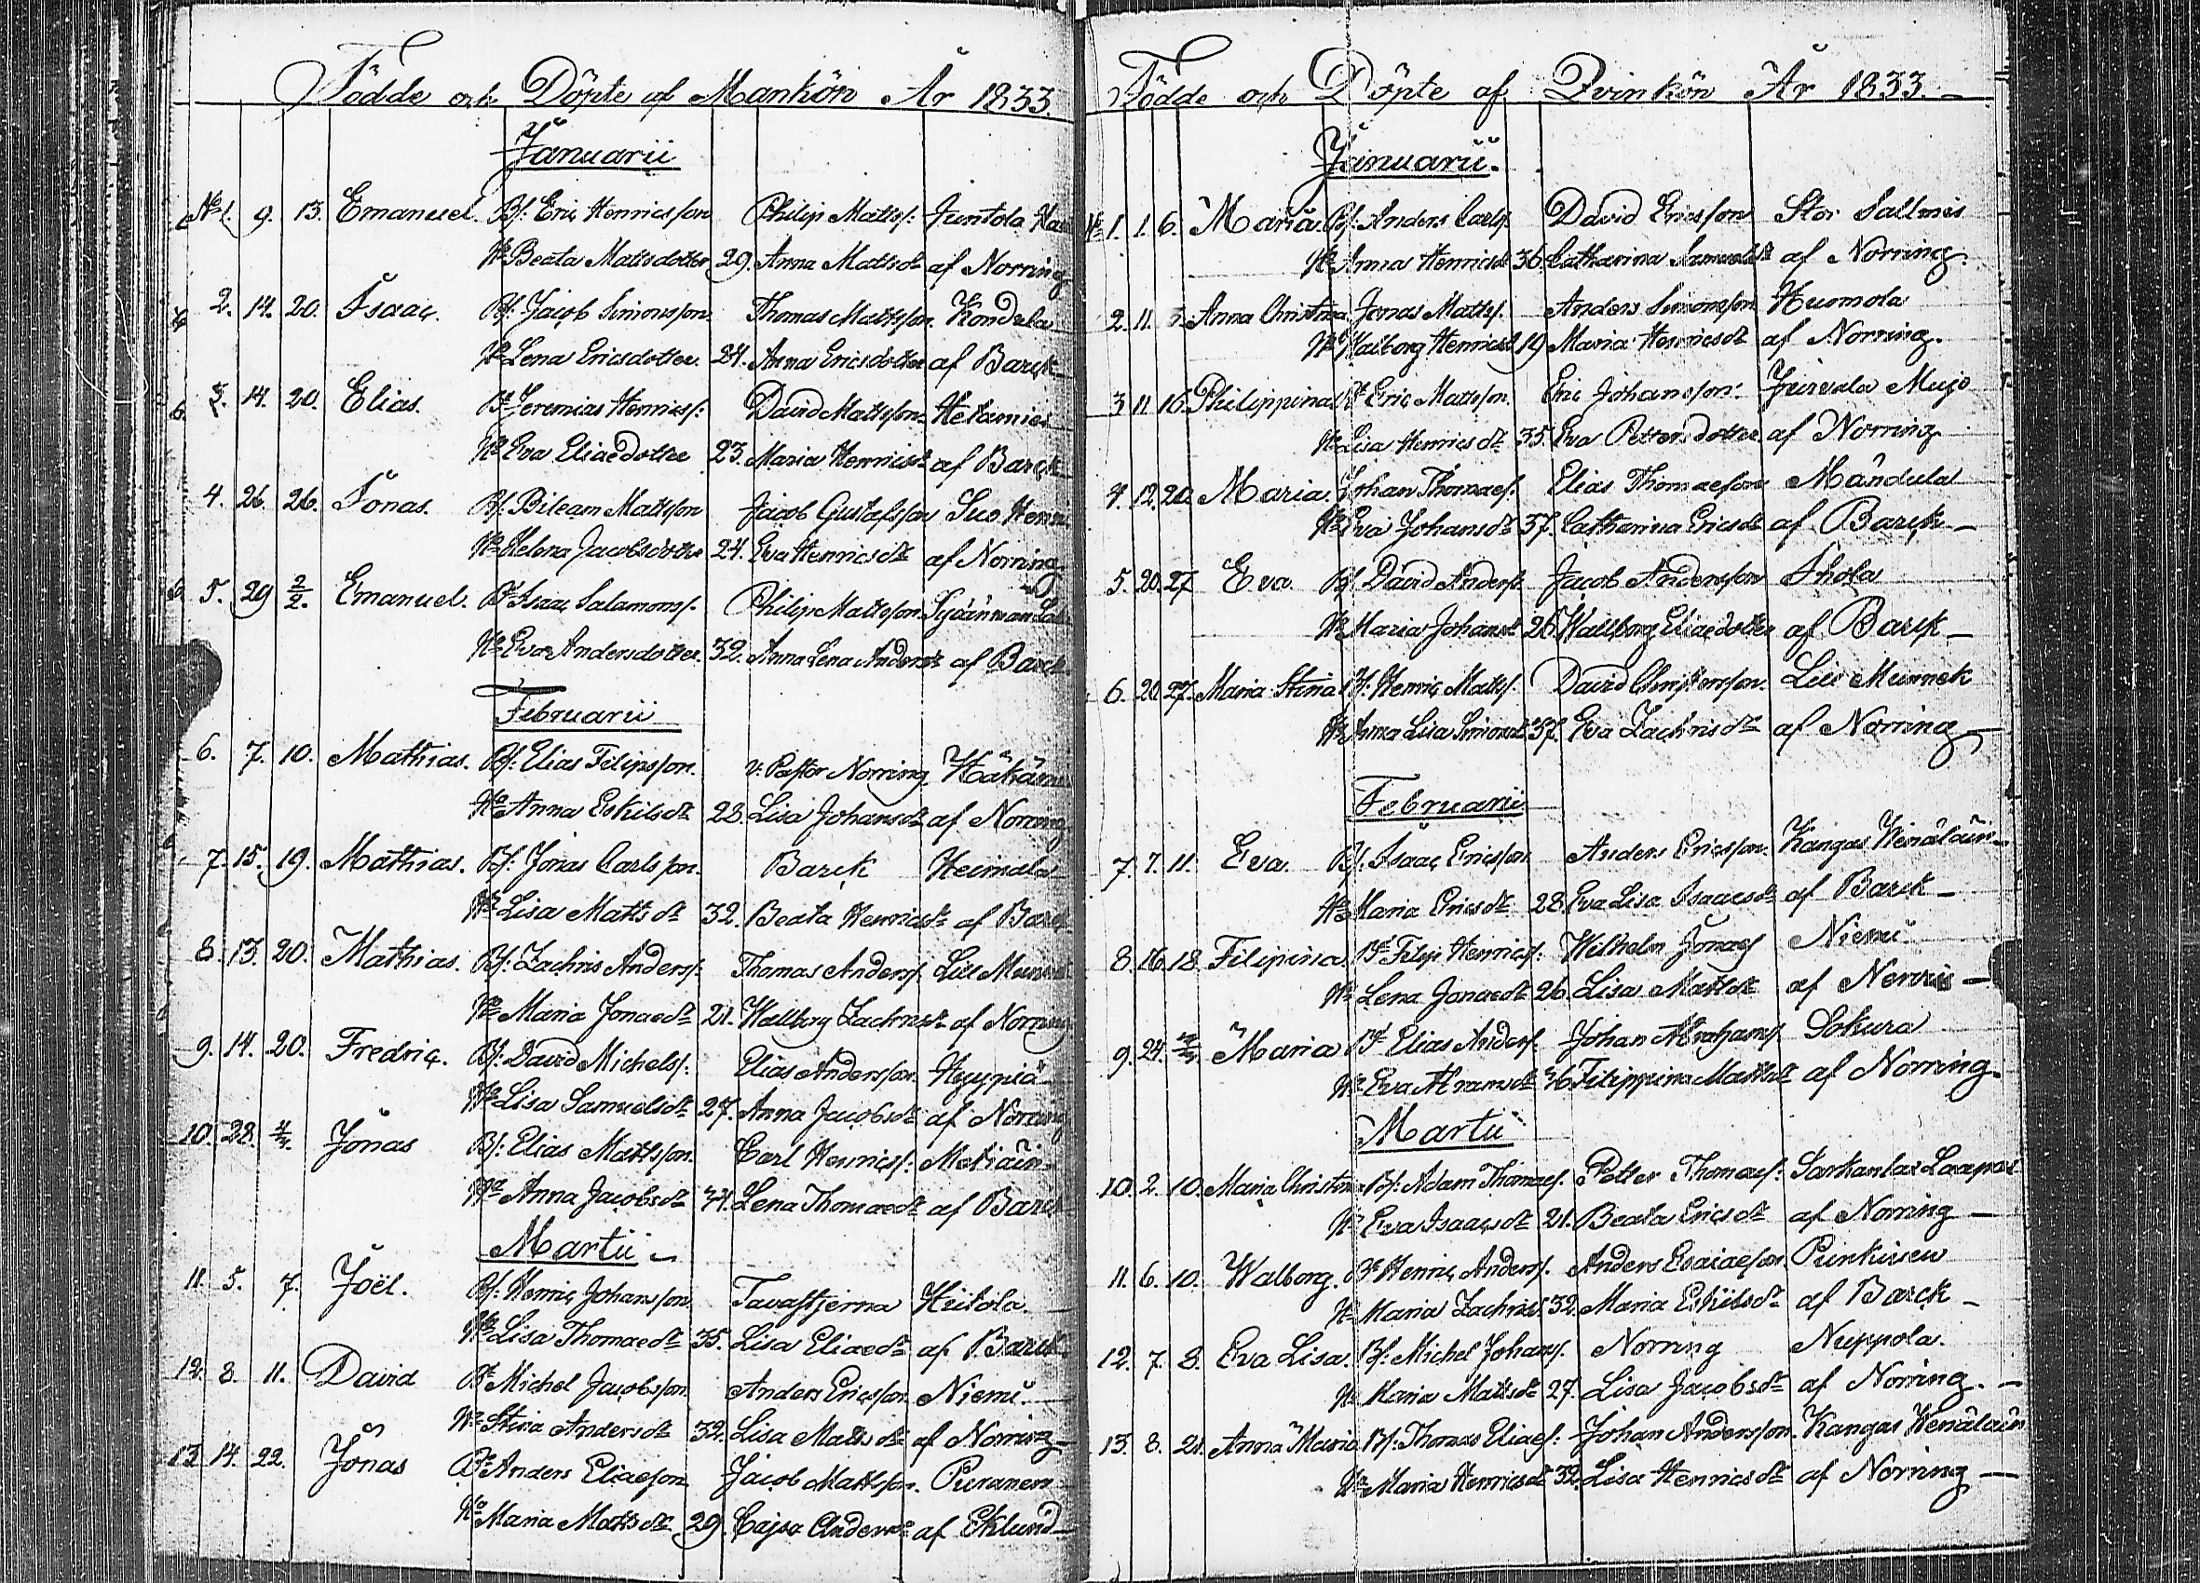 Födde och Döpte af Mankön År 1833.
Januarii
No 1. 9. 13. Emanuel. Bf. Eric Henricsson Philip Matts: Juntola
Hu Beata Mattsdotter 29. Anna Mattsdr af Norring
2. 14. 20. Isaac. Bf. Jacob Simonsson. Thomas Mattsson. Kondula
Hu Lena Ericsdotter. 24. Anna Ericsdotter af Barck
3. 14. 20. Elias. Bf. Jeremias Henrics: David Mattsson. Hetamies
Hu Eva Eliædotter 23. Maria Henricsdr af Barck
4. 26. 26. Jonas. Bf. Bileam Mattsson Jacob Gustafsson Suo
Hu Helena Jacobsdotter 24. Eva Henricsdr af Norring
5. 29 2/2. Emanuel. Bf. Isaac Salamonss. Philip Mattsson
Hu Eva Andersdotter. 32. Anna Lena Andersdr af Barck
Februarii
6. 7. 10. Mathias. Bf. Elias Filipsson. v. Pastor Norring
Hu Anna Eskilsdr 28. Lisa Johansdr af Norring
7. 15. 19. Mathias. Bf. Jonas Carlsson. Barck Heimala
Hu Lisa Mattsdr 32. Beata Henricsdr af Barck
8. 13. 20. Mathias. Bf. Zachris Anderss: Thomas Anderss. Lill
Hu Maria Jonædr 21. Wallborg Zachrisdr af Norring
9. 14. 20. Fredric. Bf. David Michelss: Elias Andersson. Hyypiä
Hu Lisa Samuelsdr 27. Anna Jacobsdr af Norring
10. 28. 4/3. Jonas Bf: Elias Mattsson. Carl Henricss: Metiäin
Hu Anna Jacobsdr 34. Lena Thomædr af Barck
Martii
11. 5. 7. Joël. Bf. Henric Johansson. Tavastjerna Hiitola.
Hu Lisa Thomædr 35. Lisa Eliædr af Barck
12. 8. 11. David Bf. Michel Jacobsson. Anders Ericsson. Niemi.
Hu Stina Andersdr 32. Lisa Mattsdr af Norring
13 14. 22. Jonas Bf. Anders Eliæson Jacob Mattsson. Puranen
Hu Maria Mattsdr 29. Cajsa Andersdr af Eklund
Födde och Döpte af Qvinkön År 1833.
Januarii.
No 1. 1. 6. Maria. Bf. Anders Carlss. David Ericsson Stor Sallmis
Hu Anna Henricsdr 36. Catharina Samuelsdr af Norring.
2. 11. Anna Christina. Jonas Mattss. Anders Simonsson Huomola
Hu Walborg Henricsdr 19 Maria Henricsdr af Norring.
3 11 16. Philippina Bf. Eric Mattsson. Eric Johansson. Juvala Mujo
Hu Lisa Henricsdr 35. Eva Pettersdotter af Norring
4. 12. 20. Maria. Johan Thomæs. Elias Thomæson Mändula
Hu Eva Johansdr 37. Catharina Ericsdr af Barck
5. 20. 27 Eva. Bf. David Anderss. Jacob Andersson Ihola
Hu Maria Johansdr 26. Wallborg Eliædotter af Barck
6. 20. 27. Maria Stina Bf: Henric Mattss. David Christersson. Lill Munnek
Hu Anna Lisa Simonsdr 37. Eva Zachrisdr af Norring
Februarii
7. 7. 11. Eva. Bf: Isaac Ericsson Anders Ericsson. Kangas Heinäläin
Hu Maria Ericsdr 28. Eva Lisa Isaacsdr af Barck
8. 16. 18. Filipina. Bf. Filip Henrics: Wilhelm Jonæs Niemi.
Hu Lena Jonædr 26. Lisa Mattsdr af
9. 24. Maria Bf. Elias Anders. Johan Abrahams. Sokura
Hu Eva Abramsdr 36. Filippina Mattsdr af Norring.
Martii
10. 2. 10. Maria Christina Bf: Adam Thomæs. Petter Thomæs: Sarkanlax
Hu Eva Isaacsdr 21. Beata Ericsdr af Norring
11. 6. 10. Walborg. Bf. Henric Anderss. Anders Esaiæson Punkinen
Hu Maria Zachrisdr 32. Maria Eskilsdr af Barck
12. 7. 8. Eva Lisa. Bf: Michel Johans. Norring Nuppola.
Hu Maria Mattsdr 27. Lisa Jacobsdr af Norring.
13. 8. 21. Anna Maria Bf: Thomas Eliæs: Johan Andersson. Kangas Henäläin
Hu Maria Henricsdr 32. Lisa Henricsdr af Norring